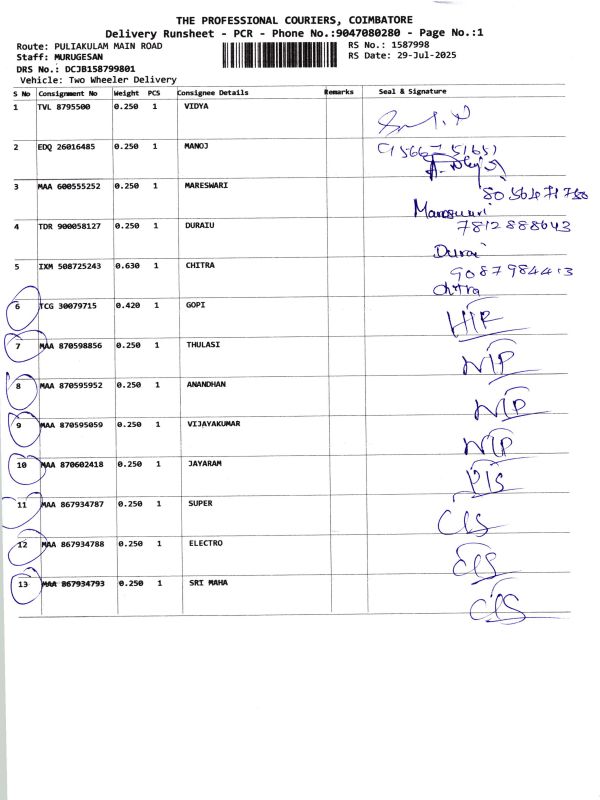 THE PROFESSIONAL COURIERS, COIMBATORE
Delivery Runsheet - PCR - Phone No.:9047080280 - Page No.:1
Route: PULIAKULAM MAIN ROAD RS No.: 1587998
Staff: MURUGESAN RS Date: 29-Jul-2025
DRS No.: DCJB158799801
Vehicle: Two Wheeler Delivery
S No Consignment No Weight PCS Consignee Details Remarks Seal & Signature
1 TVL 8795500 0.250 1 VIDYA
2 EDQ 26016485 0.250 1 MANOJ
3 MAA 600555252 0.250 1 MARESWARI
Mareswari
4 TDR 900058127 0.250 1 DURAIU 7812888643
Durai
5 IXM 508725243 0.630 1 CHITRA 9087984413
Chitra
6 TCG 30079715 0.420 1 GOPI
7 MAA 870598856 0.250 1 THULASI NIP
8 MAA 870595952 0.250 1 ANANDHAN NIP
9 MAA 870595059 0.250 1 VIJAYAKUMAR NIP
10 MAA 870602418 0.250 1 JAYARAM
11 MAA 867934787 0.250 1 SUPER CIS
12 MAA 867934788 0.250 1 ELECTRO CIS
13 MAA 867934793 0.250 1 SRI MAHA CIS